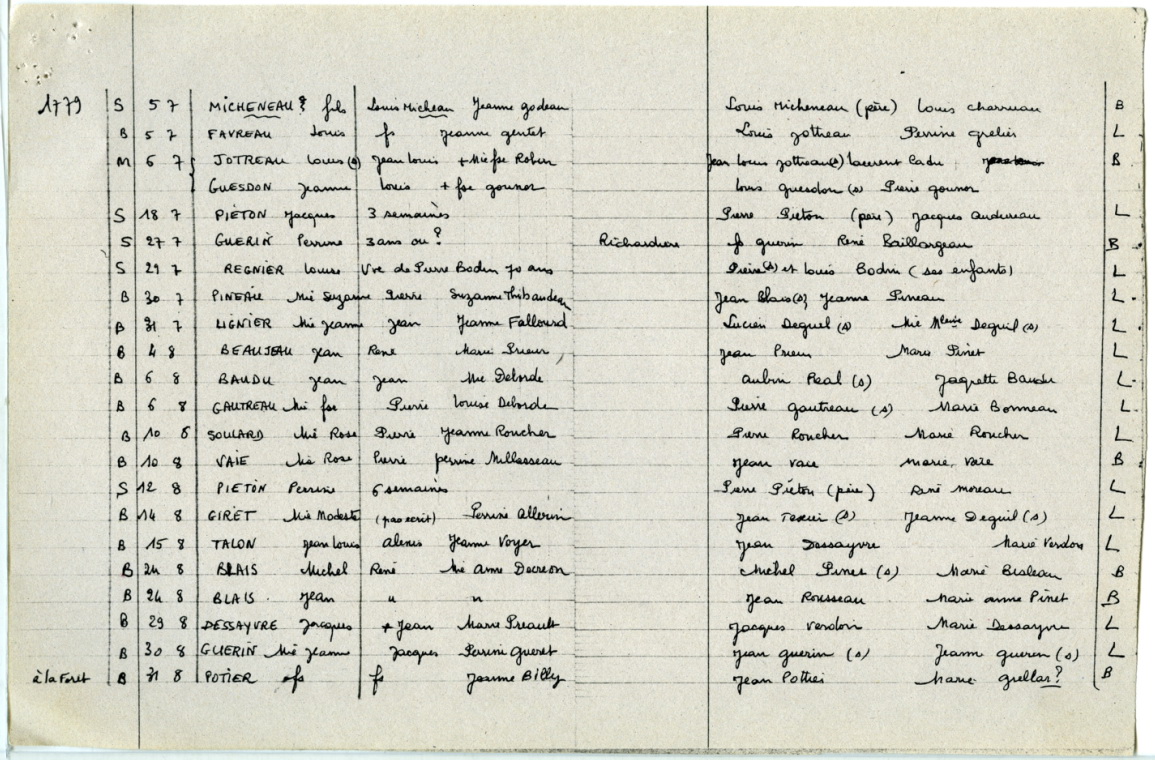 1779 S 5 7 MICHENEAU? fils Louis Micheau Jeanne godeau Louis Micheneau (père) Louis charruau B
B 5 7 FAVREAU Louis fs Jeanne gentet Louis Jottreau Perrine grelier L
M 6 7 JOTREAU Louis(s) Jean Louis + Mie fse Robin Jean Louis Jottreau(s) Laurent Cadu B
GUESDON Jeanne Louis + fse gounor Louis guesdon (s) Pierre gounor
S 18 7 PIÉTON Jacques 3 semaines Pierre Piéton (père) Jacques L
S 27 7 GUERIN Perrine 3 ans ou? Richardiere fs guerin René Baillargeau B
S 29 7 REGNIER Louise Vve de Pierre Bodin 70 ans Pierre(s) et Louis Bodin (ses enfants) L
B 30 7 PINEAU Mie Suzanne Pierre Suzanne Thibaudeau Jean Blais(s) Jeanne Pineau L
B 31 7 LIGNIER Mie Jeanne Jean Jeanne Fallourd Lucien Deguil (s) Mie Deguil (s) L
B 4 8 BEAUJEAU Jean René Marie Prieur Jean Prieur Marie Pinet L
B 6 8 BAUDU Jean Jean Mie Deborde Aubin Réal (s) Jaquette Baudu L
B 6 8 GAUTREAU Mie fse Pierre Louise Deborde Pierre gautreau (s) Marie Bonneau L
B 10 8 SOULARD Mie Rose Pierre Jeanne Roucher Pierre Roucher Marie Roucher L
B 10 8 VAIE Mie Rose Pierre perrine Millasseau Jean Vaie Marie Vaie B
S 12 8 PIETON Perrine 6 semaines Pierre Piéton (père) René Moreau L
B 14 8 GIRET Mie Modeste (pas ecrit) Perrine Allerin Jean Texier (s) Jeanne Deguil (s) L
B 15 8 TALON Jean Louis Alexis Jeanne Voyer Jean Dessayvre Marie Verdon L
B 24 8 BLAIS Michel René Mie Anne Decreon Michel Pinet (s) Marie Bisleau B
B 24 8 BLAIS Jean " " Jean Rousseau Marie anne Pinet B
B 29 8 DESSAYVRE Jacques + Jean Marie Préault Jacques Verdon Marie Dessayvre L
B 30 8 GUERIN Mie Jeanne Jacques Perrine Gueret Jean guerin (s) Jeanne guerin (s) L
à la Foret B 31 8 POTIER fs fs Jeanne Billy Jean Pottier Marie grellar? B